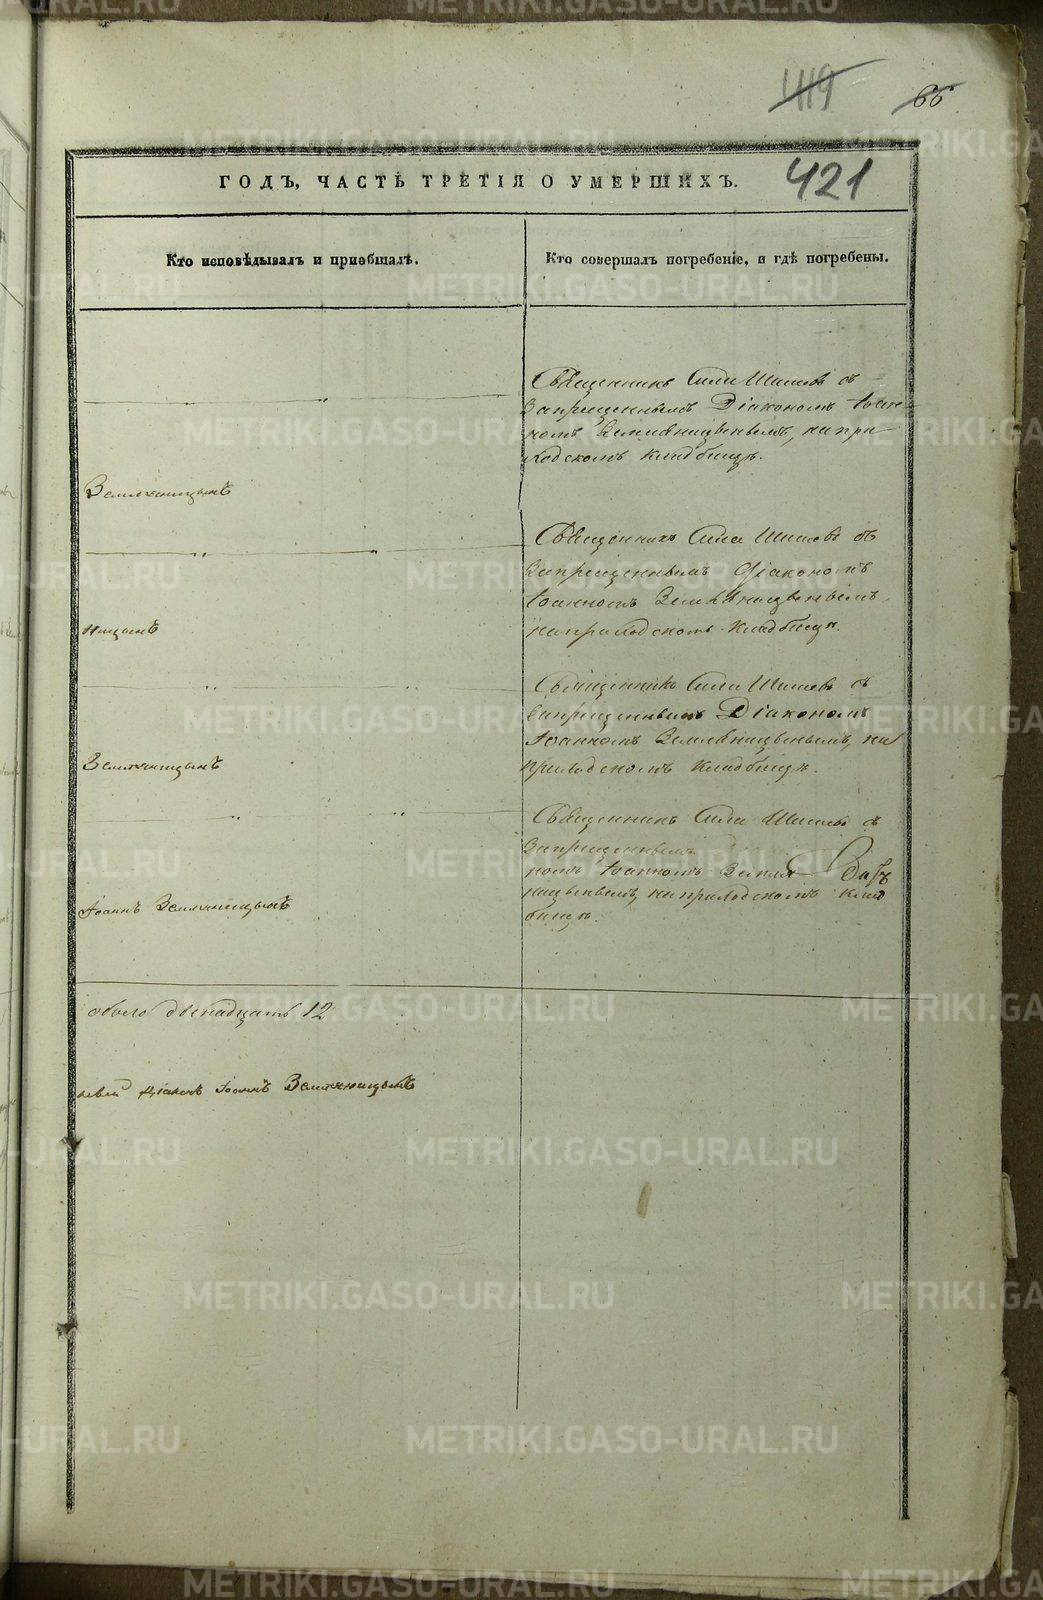 419
66
ГОДЪ, ЧАСТЬ ТРЕТІЯ О УМЕРШИХЪ.
421
Кто исповѣдывалъ и приобщалъ.
Кто совершалъ погребеніе, и гдѣ погребены.
Священникъ Сила Шишовъ съ
запрещеннымъ Діакономъ Іоан-
номъ Земляницынымъ, на при-
ходскомъ кладбищѣ.
Земляницынъ
Священникъ Сила Шишовъ съ
запрещеннымъ Діакономъ
Іоанномъ Земляницынымъ
на приходскомъ кладбищѣ.
ницынъ
Священникъ Сила Шишовъ съ
запрещеннымъ Діакономъ
Іоанномъ Земляницынымъ, на
приходскомъ кладбищѣ.
Земляницынъ
Священникъ Сила Шишовъ съ
запрещеннымъ
номъ Іоанномъ Земля-
ницынымъ, на приходскомъ клад
бищѣ.
Іоаннъ Земляницынъ
обоего двенадцать 12
Діаконъ Іоаннъ Земляницынъ
METRIKI.GASO-URAL.RU